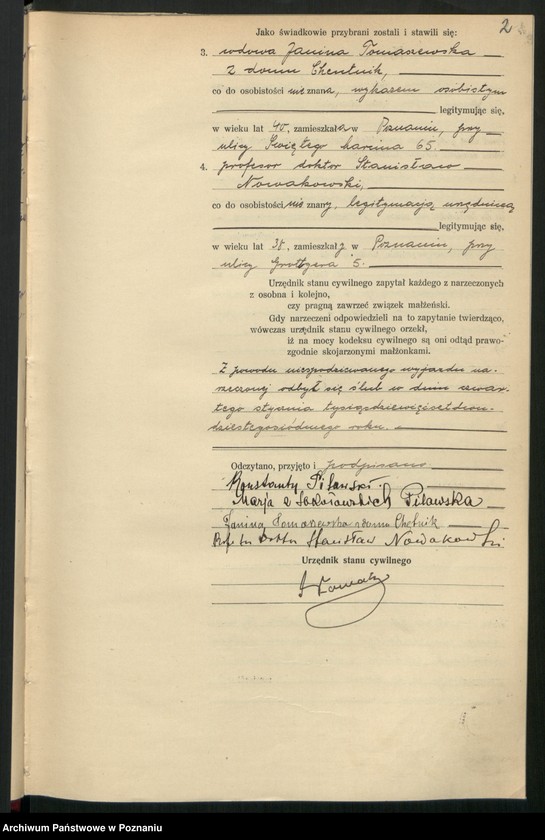 2
Jako świadkowie przybrani zostali i stawili się:
3. wdowa Janina Tomaszewska
z domu Chentnik,
co do osobistości nieznana, wykazem osobistym
legitymując się,
w wieku lat 40, zamieszkała w Poznaniu, przy
ulicy Świętego Marcina 65.
4. profesor doktor Stanisław
Nowakowski,
co do osobistości nieznany, legitymacją urzędniczą
legitymując się,
w wieku lat 38, zamieszkały w Poznaniu, przy
ulicy Grottgera 5.
Urzędnik stanu cywilnego zapytał każdego z narzeczonych
z osobna i kolejno,
czy pragną zawrzeć związek małżeński.
Gdy narzeczeni odpowiedzieli na to zapytanie twierdząco,
wówczas urzędnik stanu cywilnego orzekł,
iż na mocy kodeksu cywilnego są oni odtąd prawo-
zgodnie skojarzonymi małżonkami.
Z powodu niespodziewanego wyjazdu na-
rzeczonej odbył się ślub w dniu czwar-
tego stycznia tysiącdziewięćsetdwu-
dziestegosiódmego roku.
Odczytano, przyjęto i podpisano
Konstanty Pilawski.
Marja z Sokołowskich Pilawska
Janina Tomaszewska z domu Chętnik
Prof. Doktor Stanisław Nowakowski
Urzędnik stanu cywilnego
Archiwum Państwowe w Poznaniu